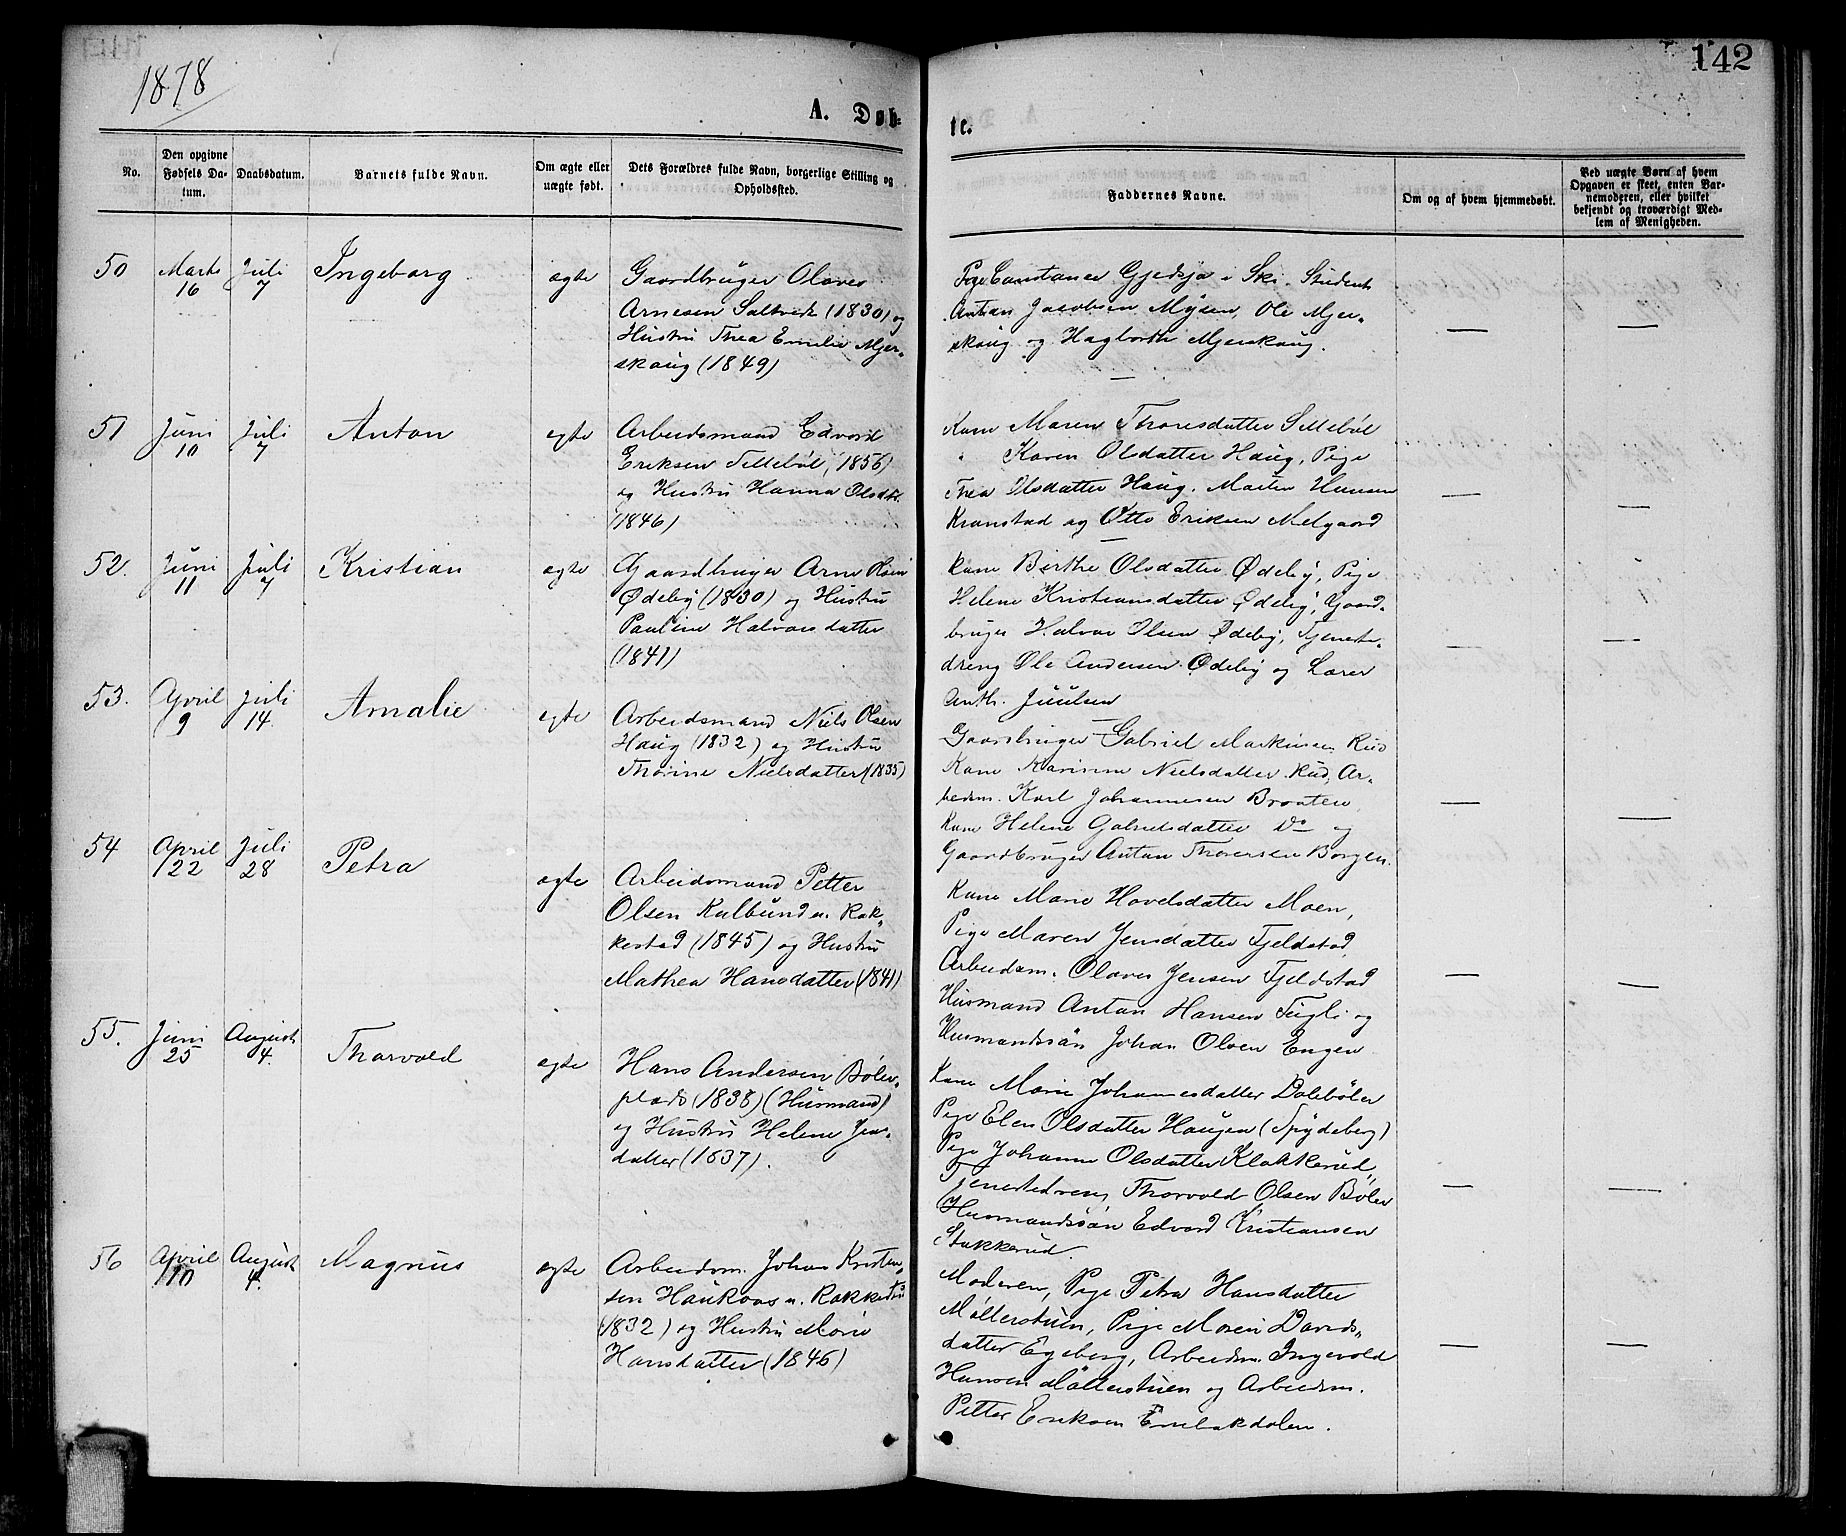 1878
142
A. Døb-
te.
No.
Den opgivne Fødsels Datum.
Daabsdatum.
Barnets fulde Navn.
Om ægte eller uægte født.
Dets Forældres fulde Navn, borgerlige Stilling og Opholdssted.
Faddernes Navne.
Om og af hvem hjemmedøbt.
Ved uægte Børn af hvem Opgaven er skeet, enten Barnemoderen, eller hvilket bekjendt og troværdigt Medlem af Menigheden.
50
Marts 16
Juli 7
Ingeborg
ægte
Gaardbruger Olaves
Arnesen Saltvik (1830) og
Hustru Thea Emilie Mjer-
skaug (1849)
Pige Constance Gjedsjø i Ski. Student
Anton Jacobsen Mysen, Ole Mjer-
skaug og Hagbarth Mjerskaug.
51
Juni 10
Juli 7
Anton
egte
Arbeidsmand Edvard
Eriksen Settebøl, 1856)
og Hustru Hanna Olsdtr.
(1846)
Kone Maren Thoresdatter Settebøl
" Karen Olsdatter Haug, Pige
Thea Olsdatter Haug. Martin Hansen
Kronstad og Otto Eriksen Melgaard
52.
Juni 11
Juli 7
Kristian
ægte
Gaardbruger Arne Olsen
Ødeby (1830) og Hustru
Pauline Halvorsdatter
(1841)
Kone Birthe Olsdatter Ødeby, Pige
Helene Kristiansdatter Ødeby, Gaard-
bruger Halvor Olsen Ødeby, Tjeneste-
dreng Ole Andersen Ødeby og Lærer
Anth. Juulsen
53.
April 9
Juli 14.
Amalie
egte
Arbeidsmand Niels Olsen
Haug (1832) og Hustru
Thorine Nielsdatter (1835)
Gaardbruger Gabriel Markusen Rud
Kone Karinem Nielsdatter Rud, Ar-
beidsm. Karl Johannesen Braaten,
Kone Helene Gabrielsdatter Do og
Gaardbruger Anton Thoresen Borgen.
54
April 22
Juli 28
Petra
ægte
Arbeidsmand Petter
Olsen Kulbund u. Rak-
kestad (1845) og Hustru
Mathea Hansdatter (1841)
Kone Marie Hovelsdatter Moen,
Pige Maren Jensdatter Fjeldstad,
Arbeidsm. Olaves Jensen Fjeldstad
Husmand Anton Hansen Fugli og
Husmandssøn Johan Olsen Engen
55.
Juni 25
August 4.
Thorvald
ægte
Hans Andersen Bøler-
plads (1838) (Husmand)
og Hustru Helene Jens-
datter (1837).
Kone Marie Johannesdatter Dalebøler
Pige Elen Olsdatter Haugen (Spydeberg)
Pige Johanne Olsdatter Klakkerud,
Tjenestedreng Thorvald Olsen Bøler
Husmandssøn Edvard Kristiansen
Stakkerud.
56
April 10
August 4.
Magnus
ægte
Arbeidsm. Johan Kristen-
sen Haukaas u. Rakkestad
(1832) og Hustru Marie
Hansdatter (1846)
Moderen, Pige Petra Hansdatter
Møllerstuen, Pige Maren Davids-
datter Egeberg, Arbeidsm. Ingevald
Hansen Møllerstuen og Arbeidsm.
Petter Eriksen Enebakdalen.